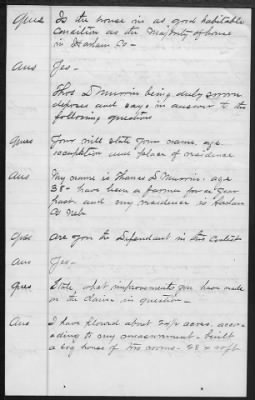 Ques Is the house in as good habitable
condition as the majority of houses
in Harlan Co -
Ans Yes -
Thos D Murrin being duly sworn
deposes and says in answer to the
following question
Ques You will state your name, age
occupation and place of residence
Ans My name is Thomas D Murrin. age
38 - have been a farmer for
past and my residence is Harlan
Co Neb
Ques are you the Defendant in this Contest
Ans Yes -
Ques State what improvements you have made
on the claim in question -
Ans I have plowed about acres, accor-
ding to my measurement - built
a log house of rooms -